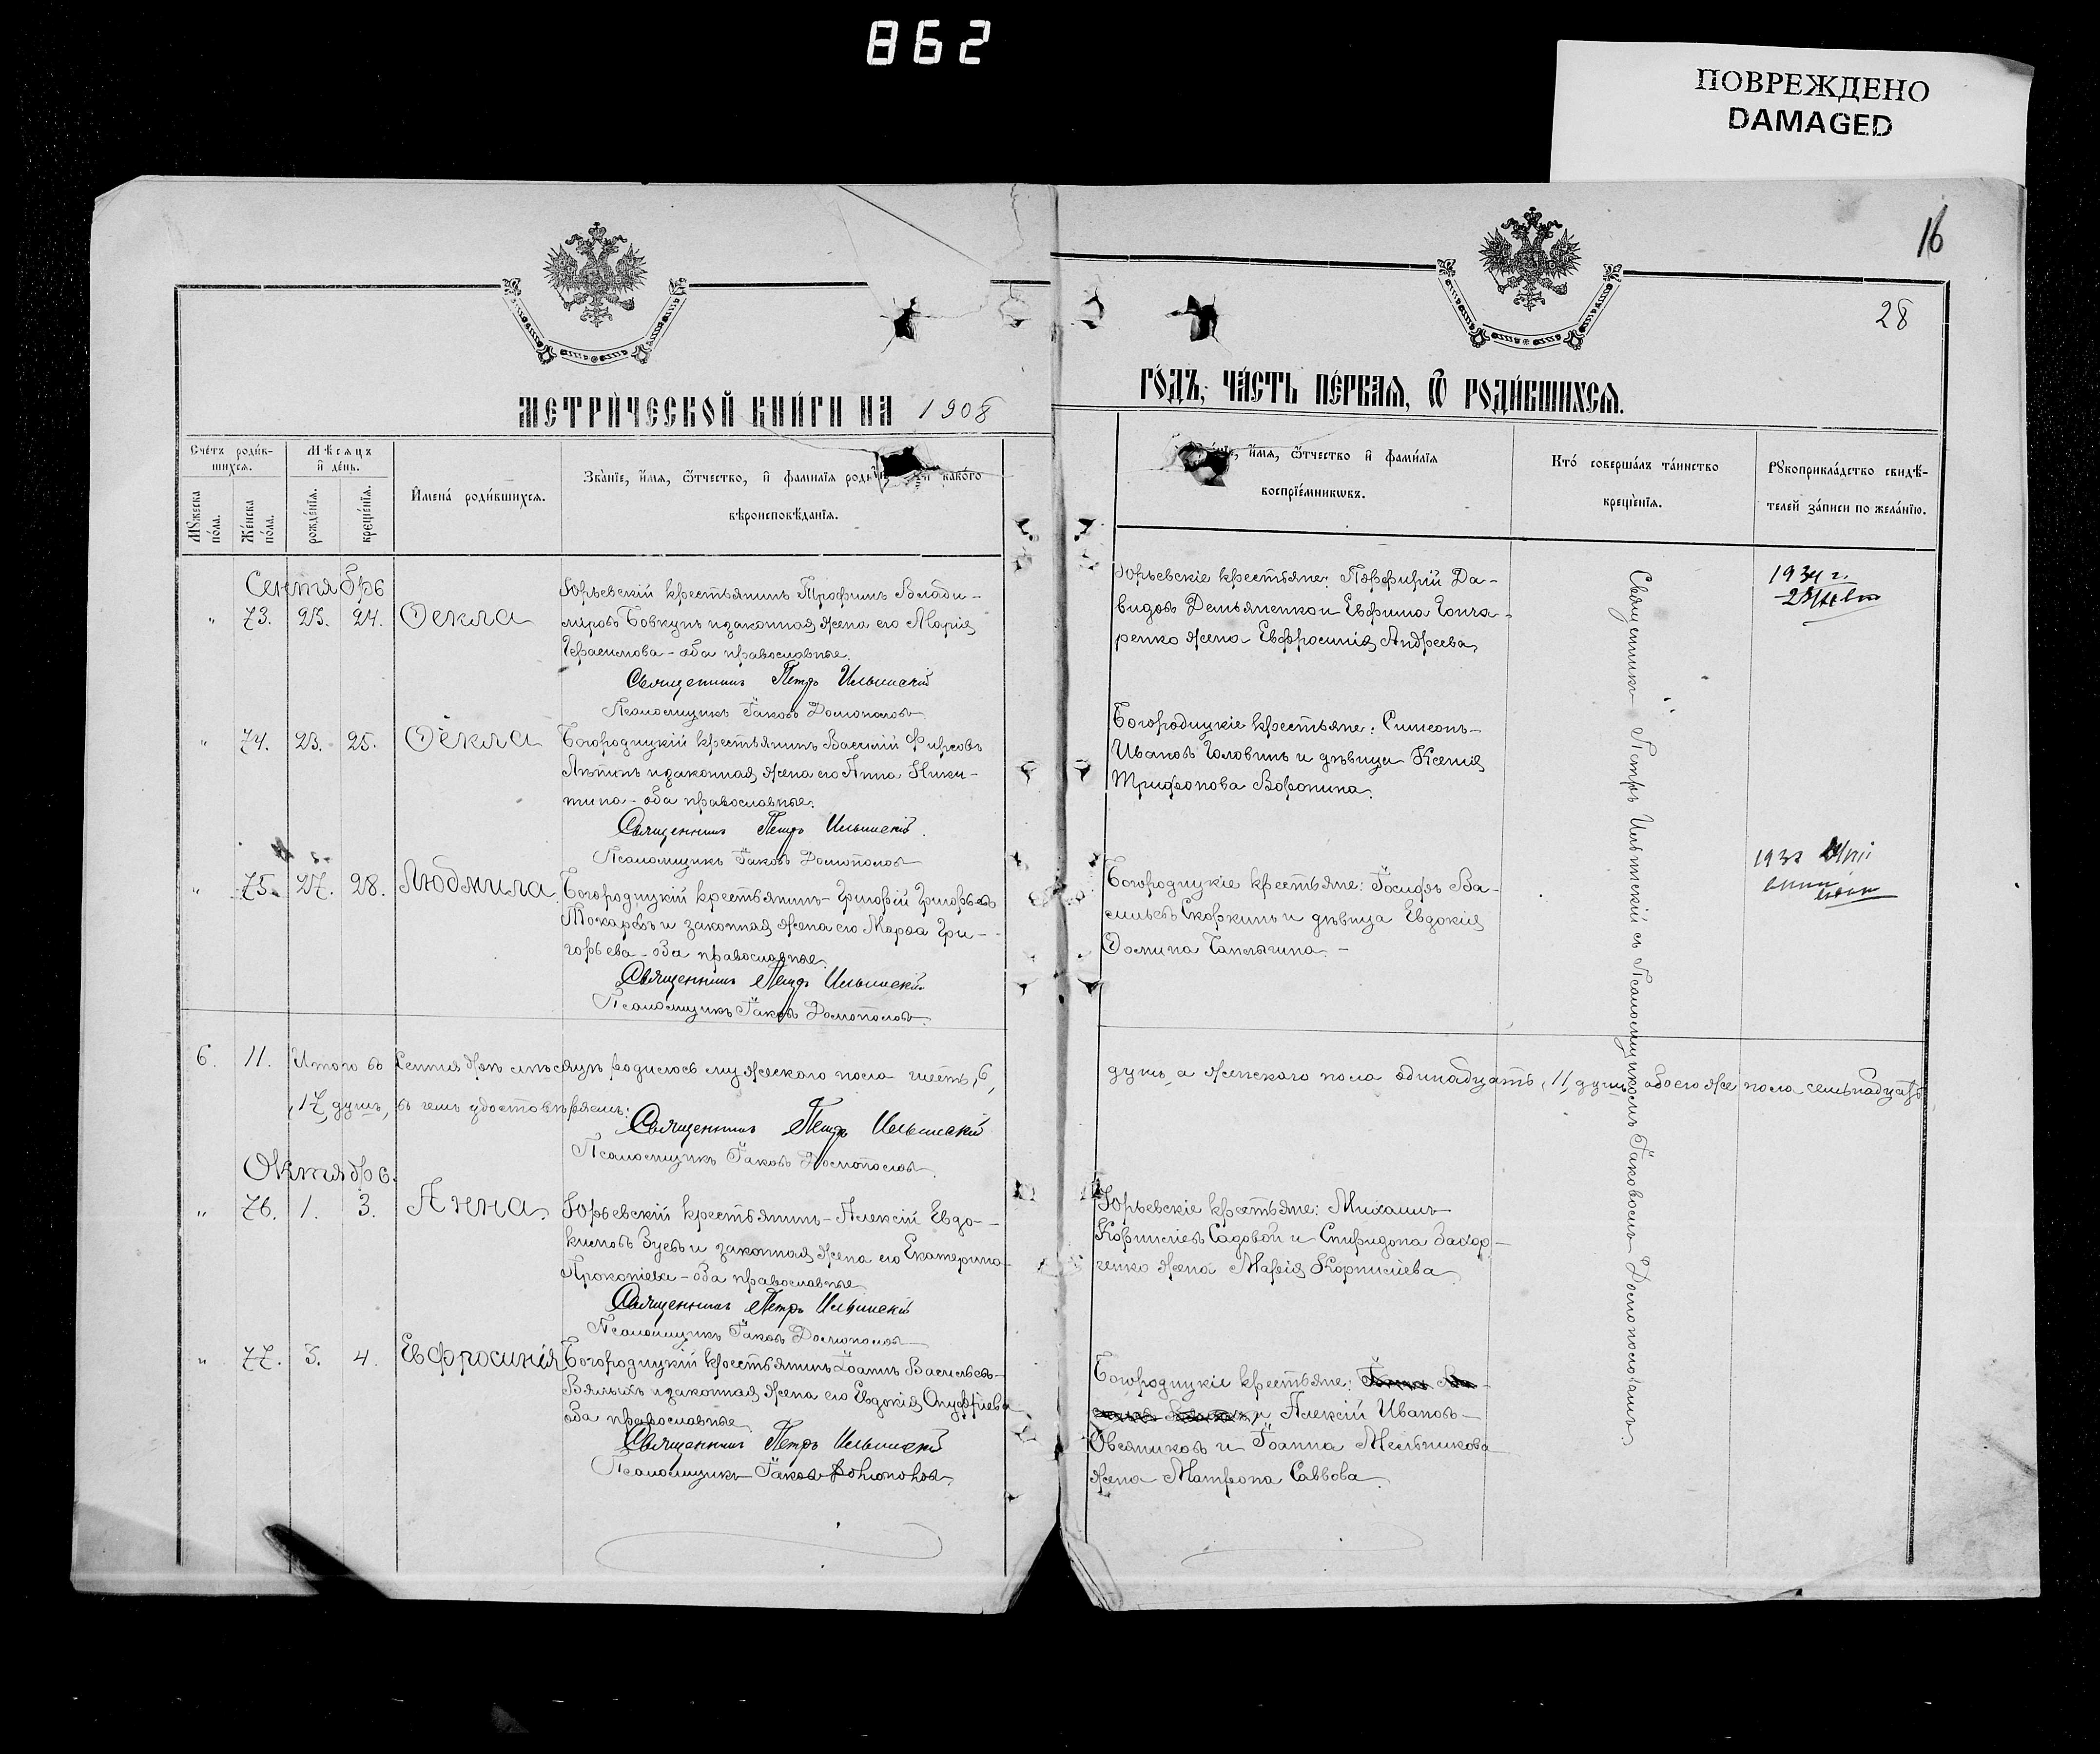 862
ПОВРЕЖДЕНО
DAMAGED
16
28
МЕТРИ́ЧЕСКОЙ КНИ́ГИ НА 1908
ГО́ДЪ, ЧА́СТЬ ПЕ́РВАЯ, Ѿ РОДИ́ВШИХСЯ.
Сче́тъ роди́в-
шихся.
Мѣсяцъ
и де́нь.
Мꙋжеска по́ла.
Же́нска по́ла.
рожде́нїя.
креще́нїя.
Имена́ роди́вшихся.
Зва́нїе, и́мя, ѻ́тчество, и фами́лїя како́го
вѣроисповѣ́данїя.
и́мя, ѻ́тчество и фами́лїя
воспрїе́мникωвъ.
Кто́ соверша́лъ та́инство
креще́нїя.
Рꙋкоприкла́дство свидѣ́-
телей за́писи по жела́нїю.
Сентябрь
" 73. 23. 24. Ѳекла
Юрьевскій крестьянинъ Трофимъ Влади-
міровъ Бовкунъ и законная жена его Марія
Герасимова - оба православные.
Священникъ Петръ Ильинскій
Псаломщикъ Іаковъ Домопоновъ
Юрьевскіе крестьяне: Порфирій Да-
видовъ Демьяненко и Ефрима Гонча-
ренко жена Евфросинія Андреева,
1934 г.
" 74. 23. 25. Ѳекла
Богородицкій крестьянинъ Василій Фирсовъ
Лѣтинъ и законная жена его Анна Ники-
тина - оба православные.
Священникъ Петръ Ильинскій
Псаломщикъ Іаковъ Домопоновъ
Богородицкіе крестьяне: Симеонъ
Ивановъ Головинъ и дѣвица Ксенія
Трифонова Воронина.
" 75. 27. 28. Людмила
Богородицкій крестьянинъ Григорій Григорьевъ
Токаревъ и законная жена его Марѳа Гри-
горьева - оба православные.
Священникъ Петръ Ильинскій
Псаломщикъ Іаковъ Домопоновъ
Богородицкіе крестьяне: Іосифъ Ва-
сильевъ Скоркинъ и дѣвица Евдокія
Домина Чаплыгина. -
Священникъ Петръ Ильинскій съ Псаломщикомъ Іаковомъ Домопоновымъ.
6. 11. Итого въ Сентябрѣ мѣсяцѣ родилось мужескаго пола шесть, 6,
душъ, а женскаго пола одинадцать, 11, душъ, обоего же пола семьнадцать
, 17, душъ, въ чемъ удостовѣряемъ:
Священникъ Петръ Ильинскій
Псаломщикъ Іаковъ Домопоновъ
Октябрь.
" 76. 1. 3. Анна.
Юрьевскій крестьянинъ - Алексій Евдо-
кимовъ Зуевъ и законная жена его Екатерина
Прокопіева - оба православные
Священникъ Петръ Ильинскій
Псаломщикъ Іаковъ Домопоновъ
Юрьевскіе крестьяне: Михаилъ
Корниліевъ Садовой и Спиридона Захар-
ченко жена Марія Корниліева
" 77. 3. 4. Евфросинія
Богородицкій крестьянинъ Іоаннъ Васильевъ
Вялыхъ и законная жена его Евдокія Онуфріева
оба православные
Священникъ Петръ Ильинскій
Псаломщикъ Іаковъ Домопоновъ.
Богородицкіе крестьяне:
и Алексій Ивановъ
Овсяниковъ и Іоанна Мельникова
жена Матрона Саввова.